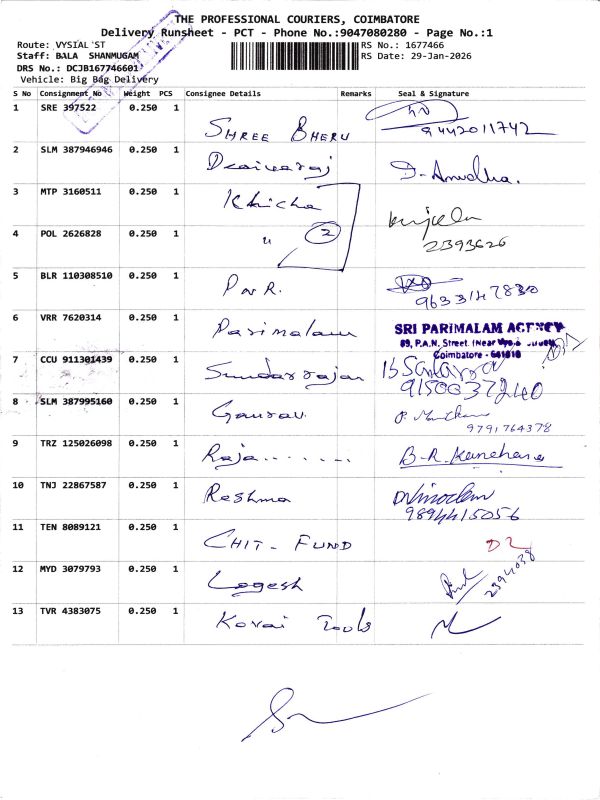 THE PROFESSIONAL COURIERS, COIMBATORE
Delivery Runsheet - PCT - Phone No.:9047080280 - Page No.:1
Route: VYSIAL ST
RS No.: 1677466
Staff: BALA SHANMUGAM
RS Date: 29-Jan-2026
DRS No.: DCJB167746601
Vehicle: Big Bag Delivery
S No Consignment No Weight PCS Consignee Details Remarks Seal & Signature
1 SRE 397522 0.250 1 SHREE BHERU 9442011742
2 SLM 387946946 0.250 1 D. Anudha.
3 MTP 3160511 0.250 1 Khicha
4 POL 2626828 0.250 1 " 2 2393626
5 BLR 110308510 0.250 1 PNR. 9633147830
6 VRR 7620314 0.250 1 Parimalam SRI PARIMALAM AGENCY
89, P.A.N. Street. (Near
Coimbatore - 641010
7 CCU 911301439 0.250 1 Sundarrajan
9150037240
8 SLM 387995160 0.250 1 Gaurav
9791764378
9 TRZ 125026098 0.250 1 Raja........ B.R. Kanchana
10 TNJ 22867587 0.250 1 Reshma
9894415056
11 TEN 8089121 0.250 1 CHIT- FUND D2
12 MYD 3079793 0.250 1 Logesh 2394038
13 TVR 4383075 0.250 1 Kovai Tools